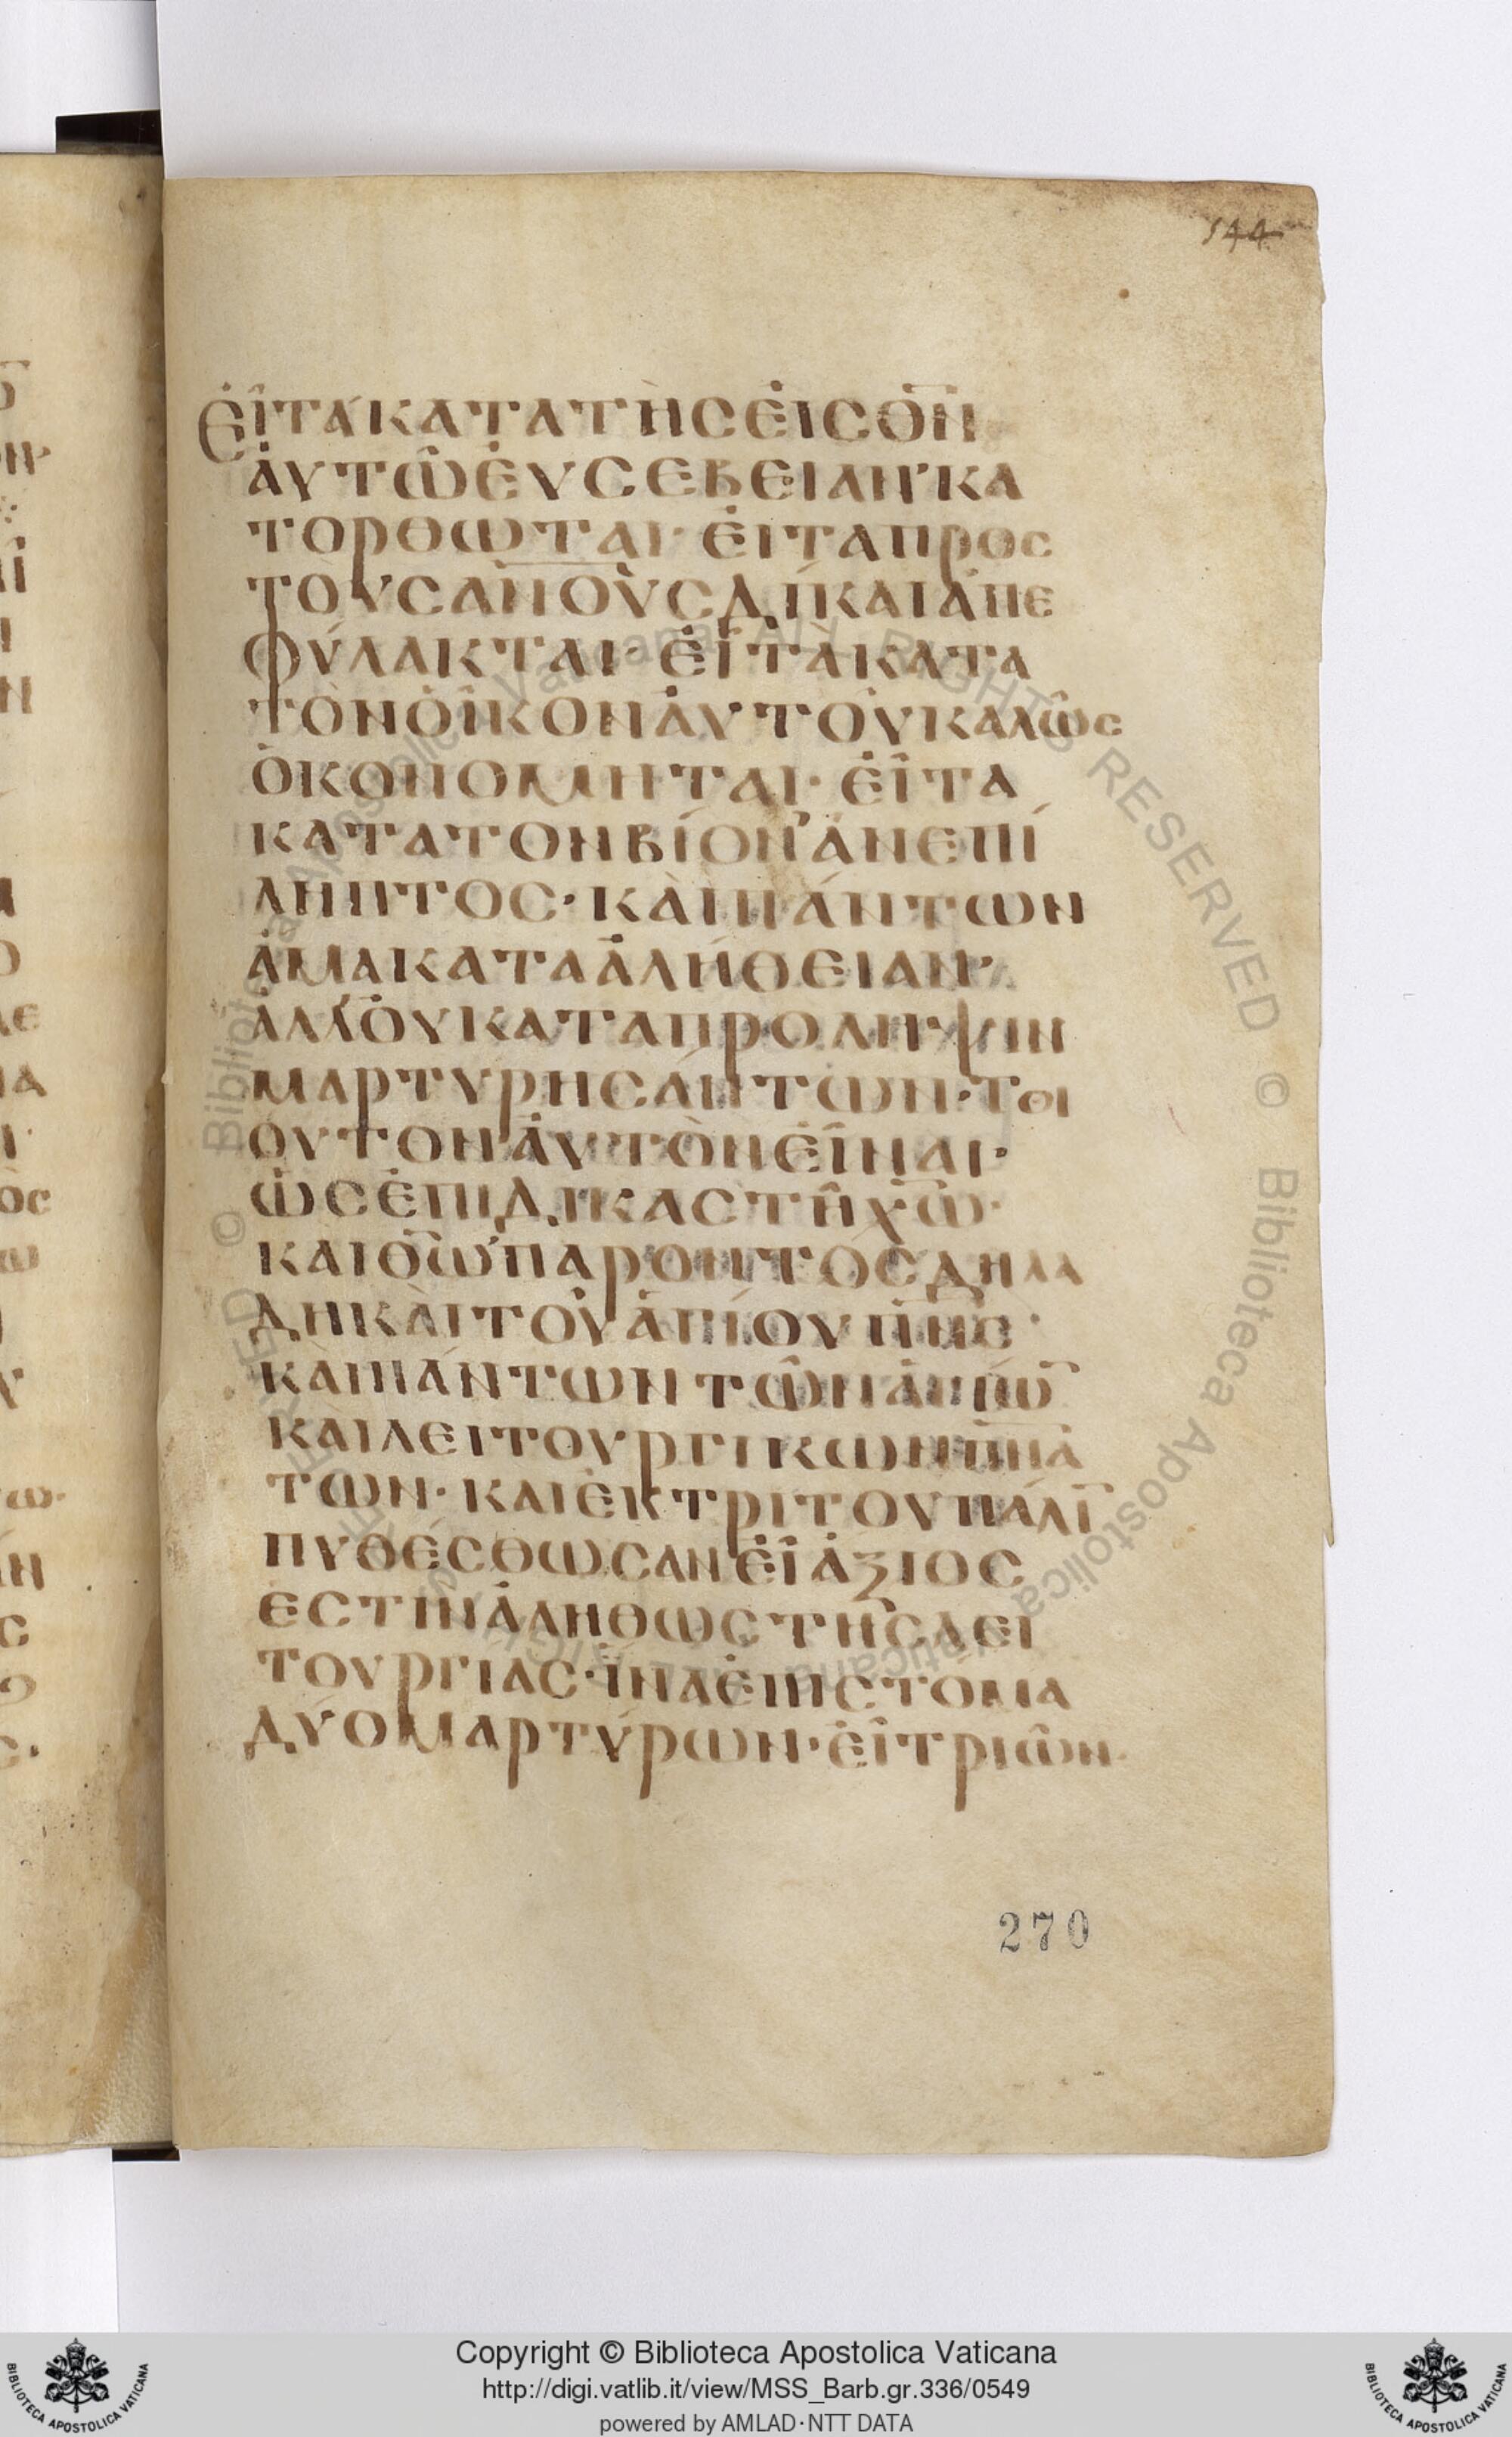 544
ΕἰΤὰΚΑΤΑΤῊϹΕἰϹΘ̅Ν̅
ἀΥΤΩ͂ΕὐϹΕΒΕΙΑΝ'ΚΑ
ΤΟΡΘΩΤΑΙ· ΕἰΤΑΠΡΟϹ
ΤΟὺϹΑ̅Ν̅Ο̅ΥϹΔΙΚΑΙΑΠΕ
ΦΥΛΑΚΤΑΙ· ΕἰΤὰΚΑΤΑ
ΤὸΝΟἶΚΟΝἀΥΤΟΥΚΑΛΩ͂Ϲ
ὈΚΟΝΟΜΗΤΑΙ· ΕἰΤΑ
ΚΑΤΑΤΟΝΒΊΟΝ'ἀΝΕΠΊ
ΛΗΠΤΟϹ· ΚΑῚΠΆΝΤΩΝ
ἁΜΑΚΑΤΑἀΛΉΘΕΙΑΝ·
ἀΛΛ'ΟὐΚΑΤΑΠΡΟΛΗΨΙΝ
ΜΑΡΤΥΡΗϹΆΝΤΩΝ· ΤΟΙ
ΟΥΤΟΝἀΥΤῸΝΕἶΝΑΙ·
ὡϹἐΠΙΔΙΚΑϹΤΗ͂Χ̅Ω̅·
ΚΑΙΘ̅Ω̅'ΠΑΡΟΝΤΟϹΔΗΛΑ
ΔΗΚΑῚΤΟΥἁΓΊΟΥΠ̅Ν̅Ϲ̅·
ΚΑῚΠΆΝΤΩΝΤΩ͂ΝἁΓΊΩ̅
ΚΑῚΛΕΙΤΟΥΡΓΙΚΩΝΠ̅Ν̅Α̅
ΤΩΝ· ΚΑΙἐΚΤΡΙΤΟΥΠΆΛΙ̅
ΠΥΘΈϹΘΩϹΑΝΕἰἄΞΙΟϹ
ΕϹΤΙΝἀΛΗΘΩϹΤΗϹΛΕΙ
ΤΟΥΡΓΙΑϹ· ἵΝΑἐΠῚϹΤΟΜΑ
ΔΥΟΜΑΡΤΎΡΩΝ· ΕἰΤΡΙΩ͂Ν·
270
Copyright © Biblioteca Apostolica Vaticana
http://digi.vatlib.it/view/MSS_Barb.gr.336/0549
powered by AMLAD·NTT DATA